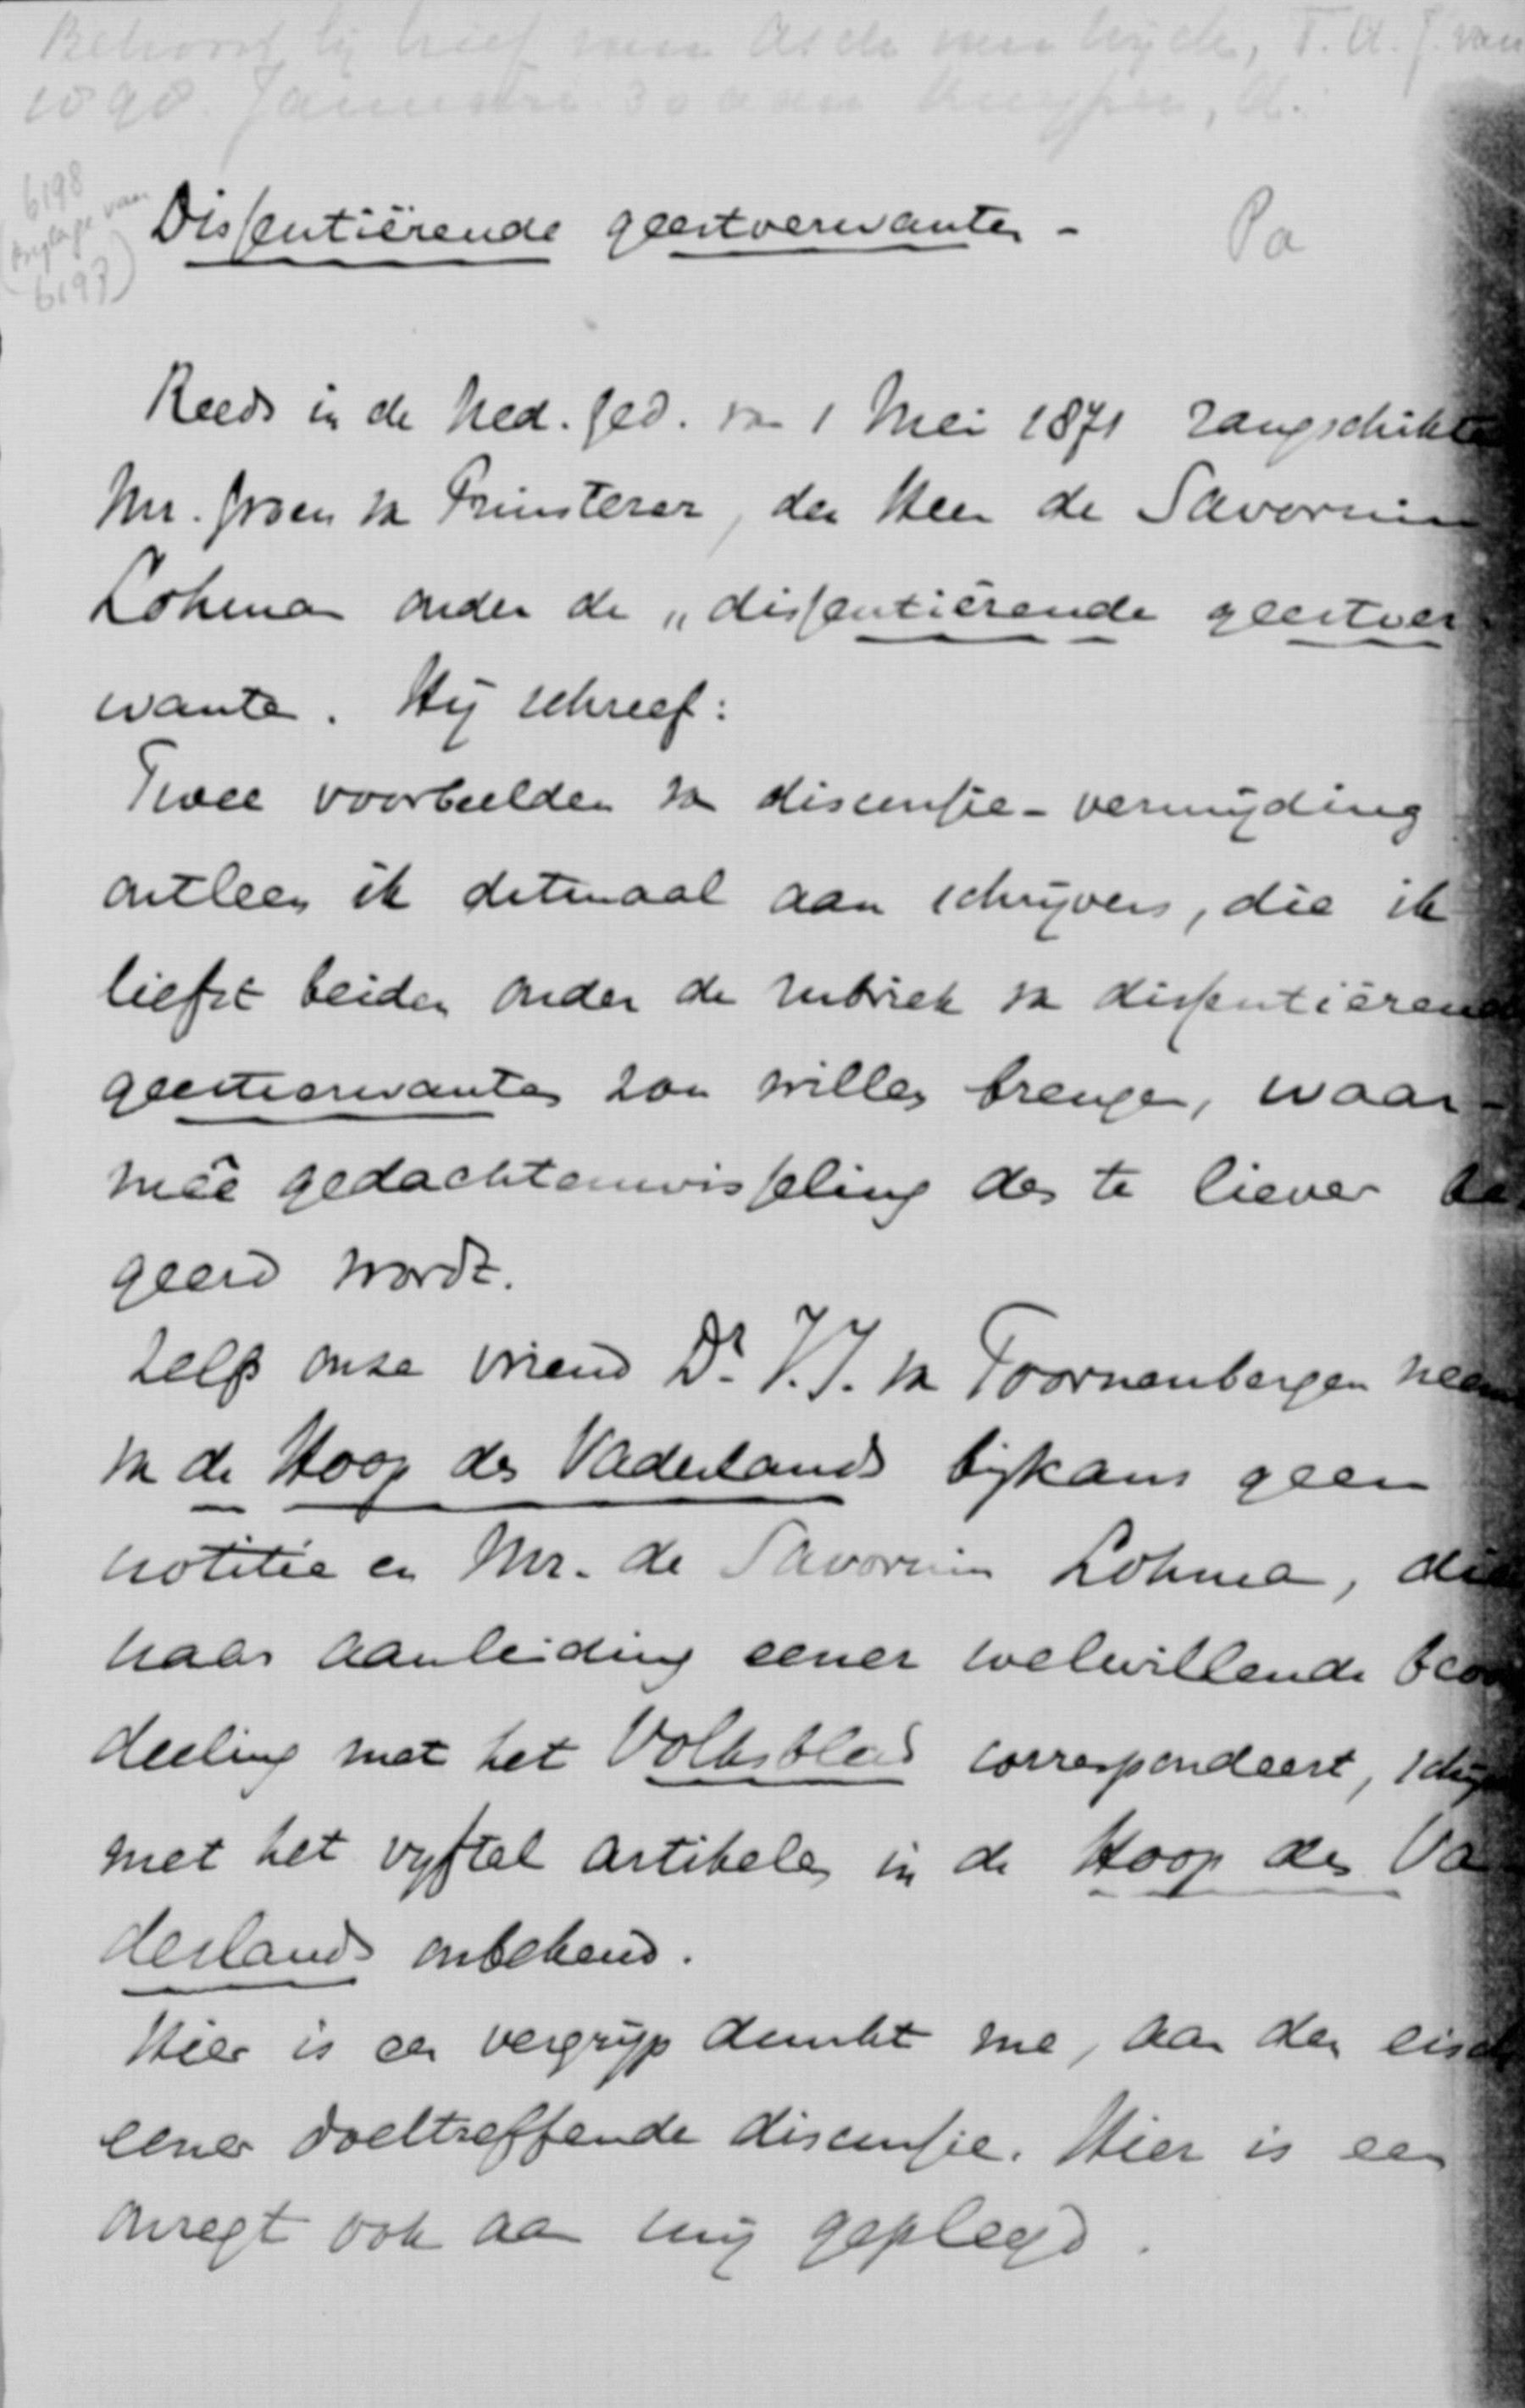 Behoort bij brief van
1898. Januari 30 aan Kuyper, A.
6198
(bijlage van
6197)
Dissentiërende geestverwanten -
Pa
Reeds in de Ned. Ged. van 1 Mei 1871 rangschikte
Mr. Groen v. Prinsterer, den Heer de Savornin
Lohman onder de „dissentiërende geestver-
wanten. Hij schreef:
Twee voorbeelden van discussie-vermijding
ontleen ik ditmaal aan schrijvers, die ik
liefst beiden onder de rubriek van dissentiërende
geestverwanten zou willen brengen, waar-
meê gedachtenwisseling des te liever be
geerd wordt.
Zelfs onze vriend Dr. J.J. van Toornenbergen neemt
van de Hoop des Vaderlands bijkans geen
notitie en Mr. de Savornin Lohman, die
naar aanleiding eener welwillende beoor
deeling met het Volksblad correspondeert, schijnt
met het vyftal artikelen in de Hoop des Va
derlands onbekend.
Hier is een vergrijp dunkt me, aan den eisch
eener doeltreffende discussie. Hier is een
onregt ook aan mij gepleegd.